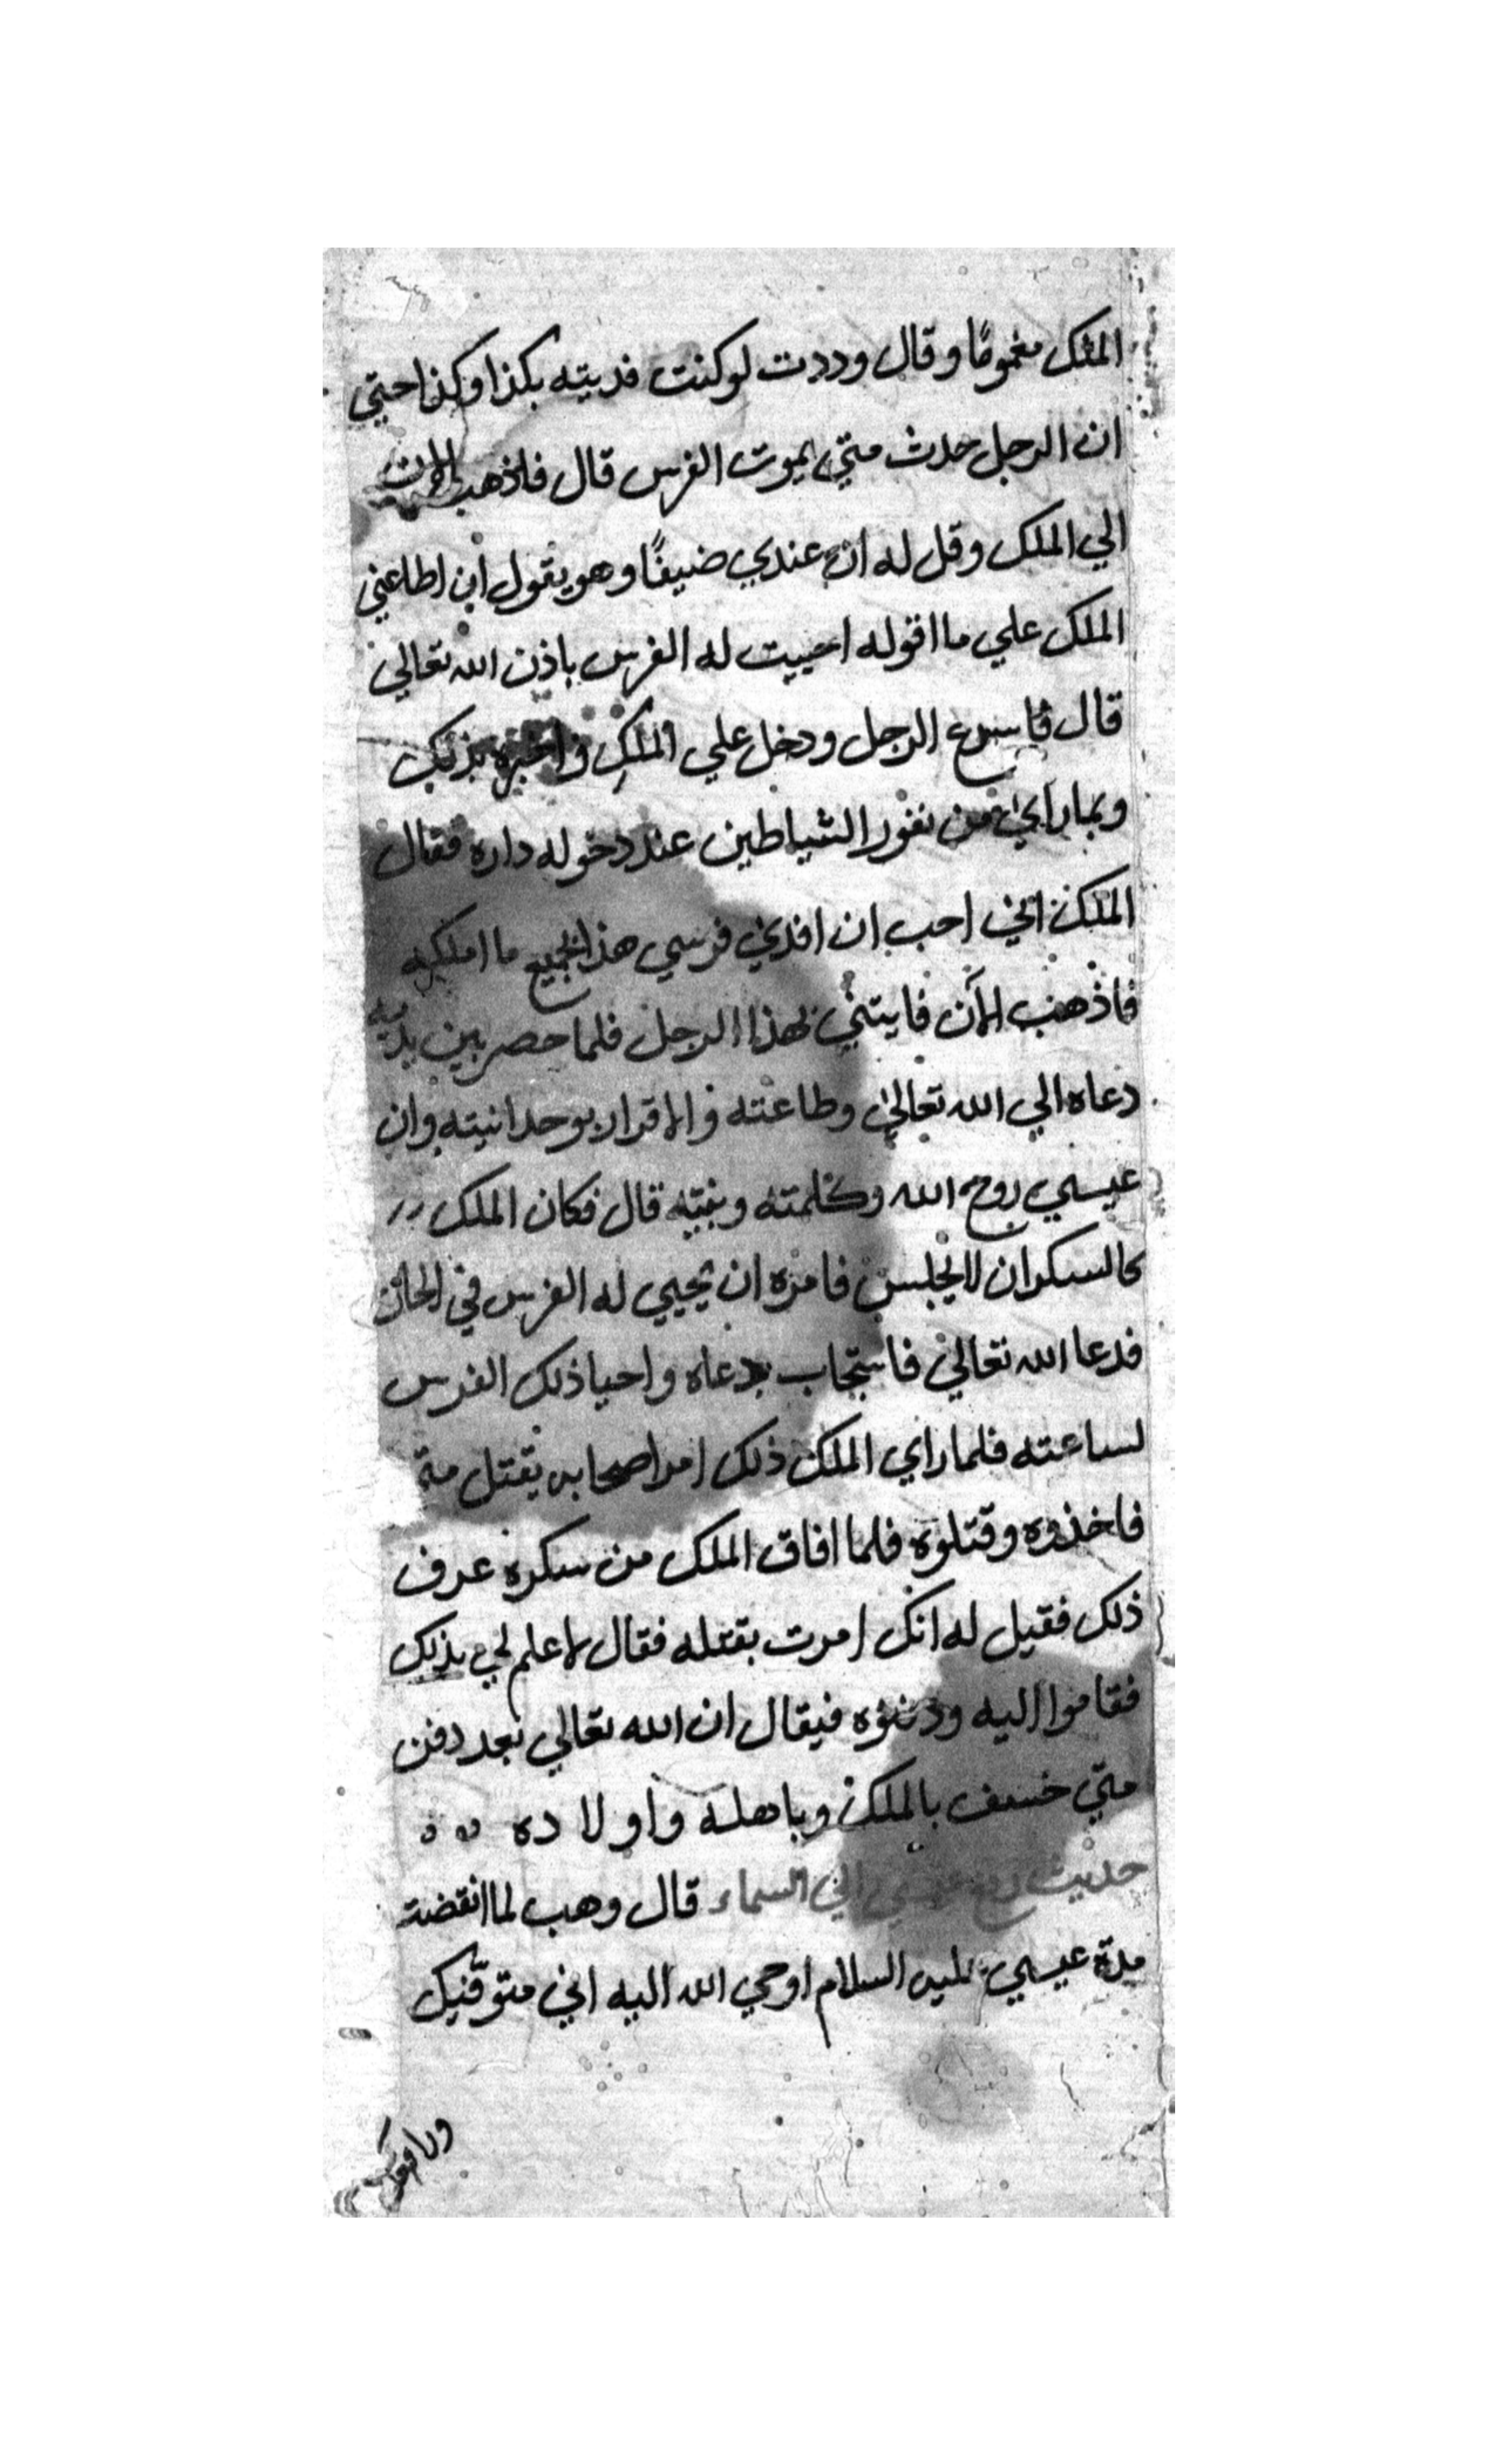 الملك مغموما وقال وددت لو كنت فديته بكذا وكذا حتي
ان الرجل حدث متي بموت الفرس قال فاذهب الان
الي الملك وقل له ان عندي ضيفًا وهو يقول ان اطاعني
الملك علي ما اقوله احييت له الفرس باذن الله تعالي
قال فاسرع الرجل ودخل علي الملك واخبره بذلك
وبما راي من نفور الشياطين عند دخوله داره فقال
الملك اني احب ان افدي فرسي هذا بجميع ما املكه
فاذهب الآن فايتني بهذا الرجل فلما حضر بين يديه
دعاه الي الله تعالي وطاعته والاقرار بوحدانيته وان
عيسي روح الله وكلمته ونبيه قال فكان الملك
كالسكران لا يجلس فامره ان يحيي له الفرس في الحال
فدعا الله تعالي فاستجاب دعاه واحيا ذلك الفرس
لساعته فلما راي الملك ذلك امر اصحابه بقتل متي
فاخذوه وقتلوه فلما افاق الملك من سكره عرف
ذلك فقيل له انك امرت بقتله فقال لا علم لي بذلك
فقاموا اليه ودفنوه فيقال ان الله تعالي بعد دفن
متي خسف بالملك وباهله واولاده
حديث رفع عيسي الي السماء قال وهب لما انقضت
مدة عيسي عليه السلام اوحي الله اليه اني متوفيك
ورافعك